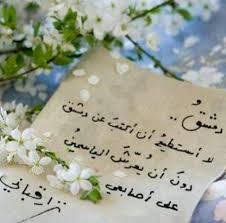 دمشقُ ..
لا أستطيعُ أن أكتبَ عن دمشق
دونَ أن يُعرّشَ الياسمينُ
على أصابعي .. نزار قباني